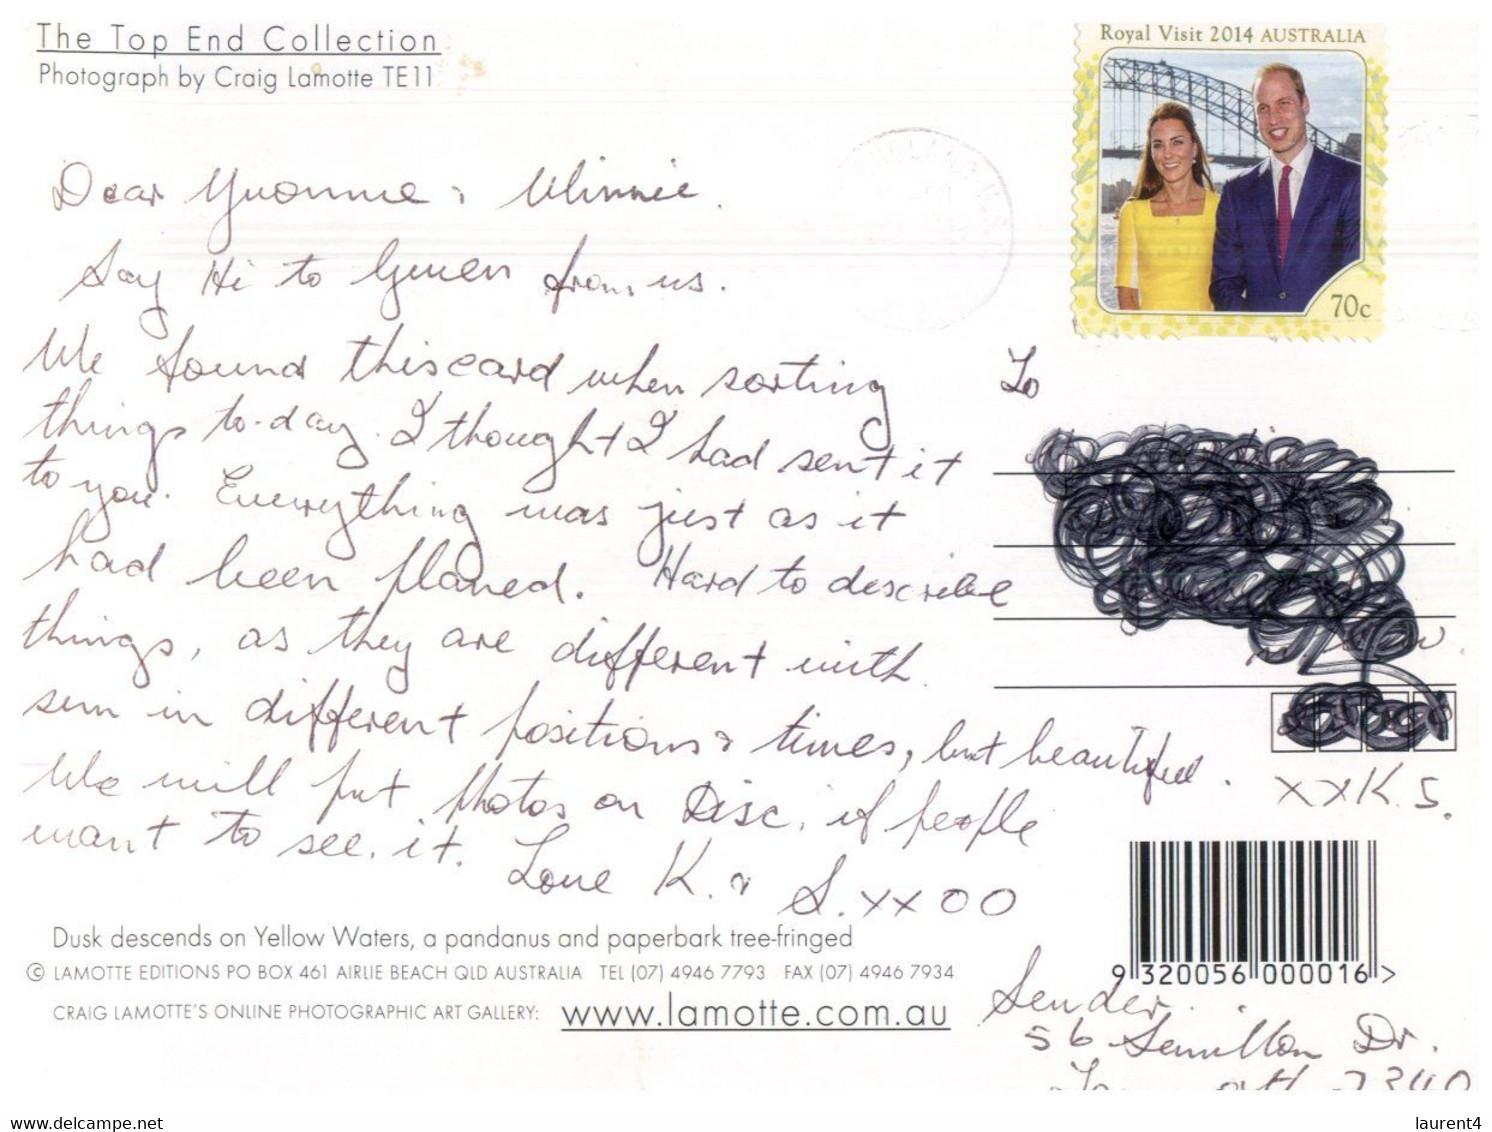 The Top End Collection
Photograph by Craig Lamotte TE11
Royal Visit 2014 AUSTRALIA
70c
Dear Yvonne & Winnie.
Say Hi to Gwen from us.
We found this card when sorting
things to-day. I thought I had sent it
to you. Everything was just as it
had been planed. Hard to describe
things, as they are different with
sun in different positions & times, but beautiful.
We will put photos on Disc, if people
want to see it.
Love K. & S. xx OO
To
xx K. S.
Dusk descends on Yellow Waters, a pandanus and paperbark tree-fringed
© LAMOTTE EDITIONS PO BOX 461 AIRLIE BEACH QLD AUSTRALIA TEL (07) 4946 7793 FAX (07) 4946 7934
CRAIG LAMOTTE'S ONLINE PHOTOGRAPHIC ART GALLERY: www.lamotte.com.au
9 320056 000016 >
Sender.
56 Dr.
laurent4